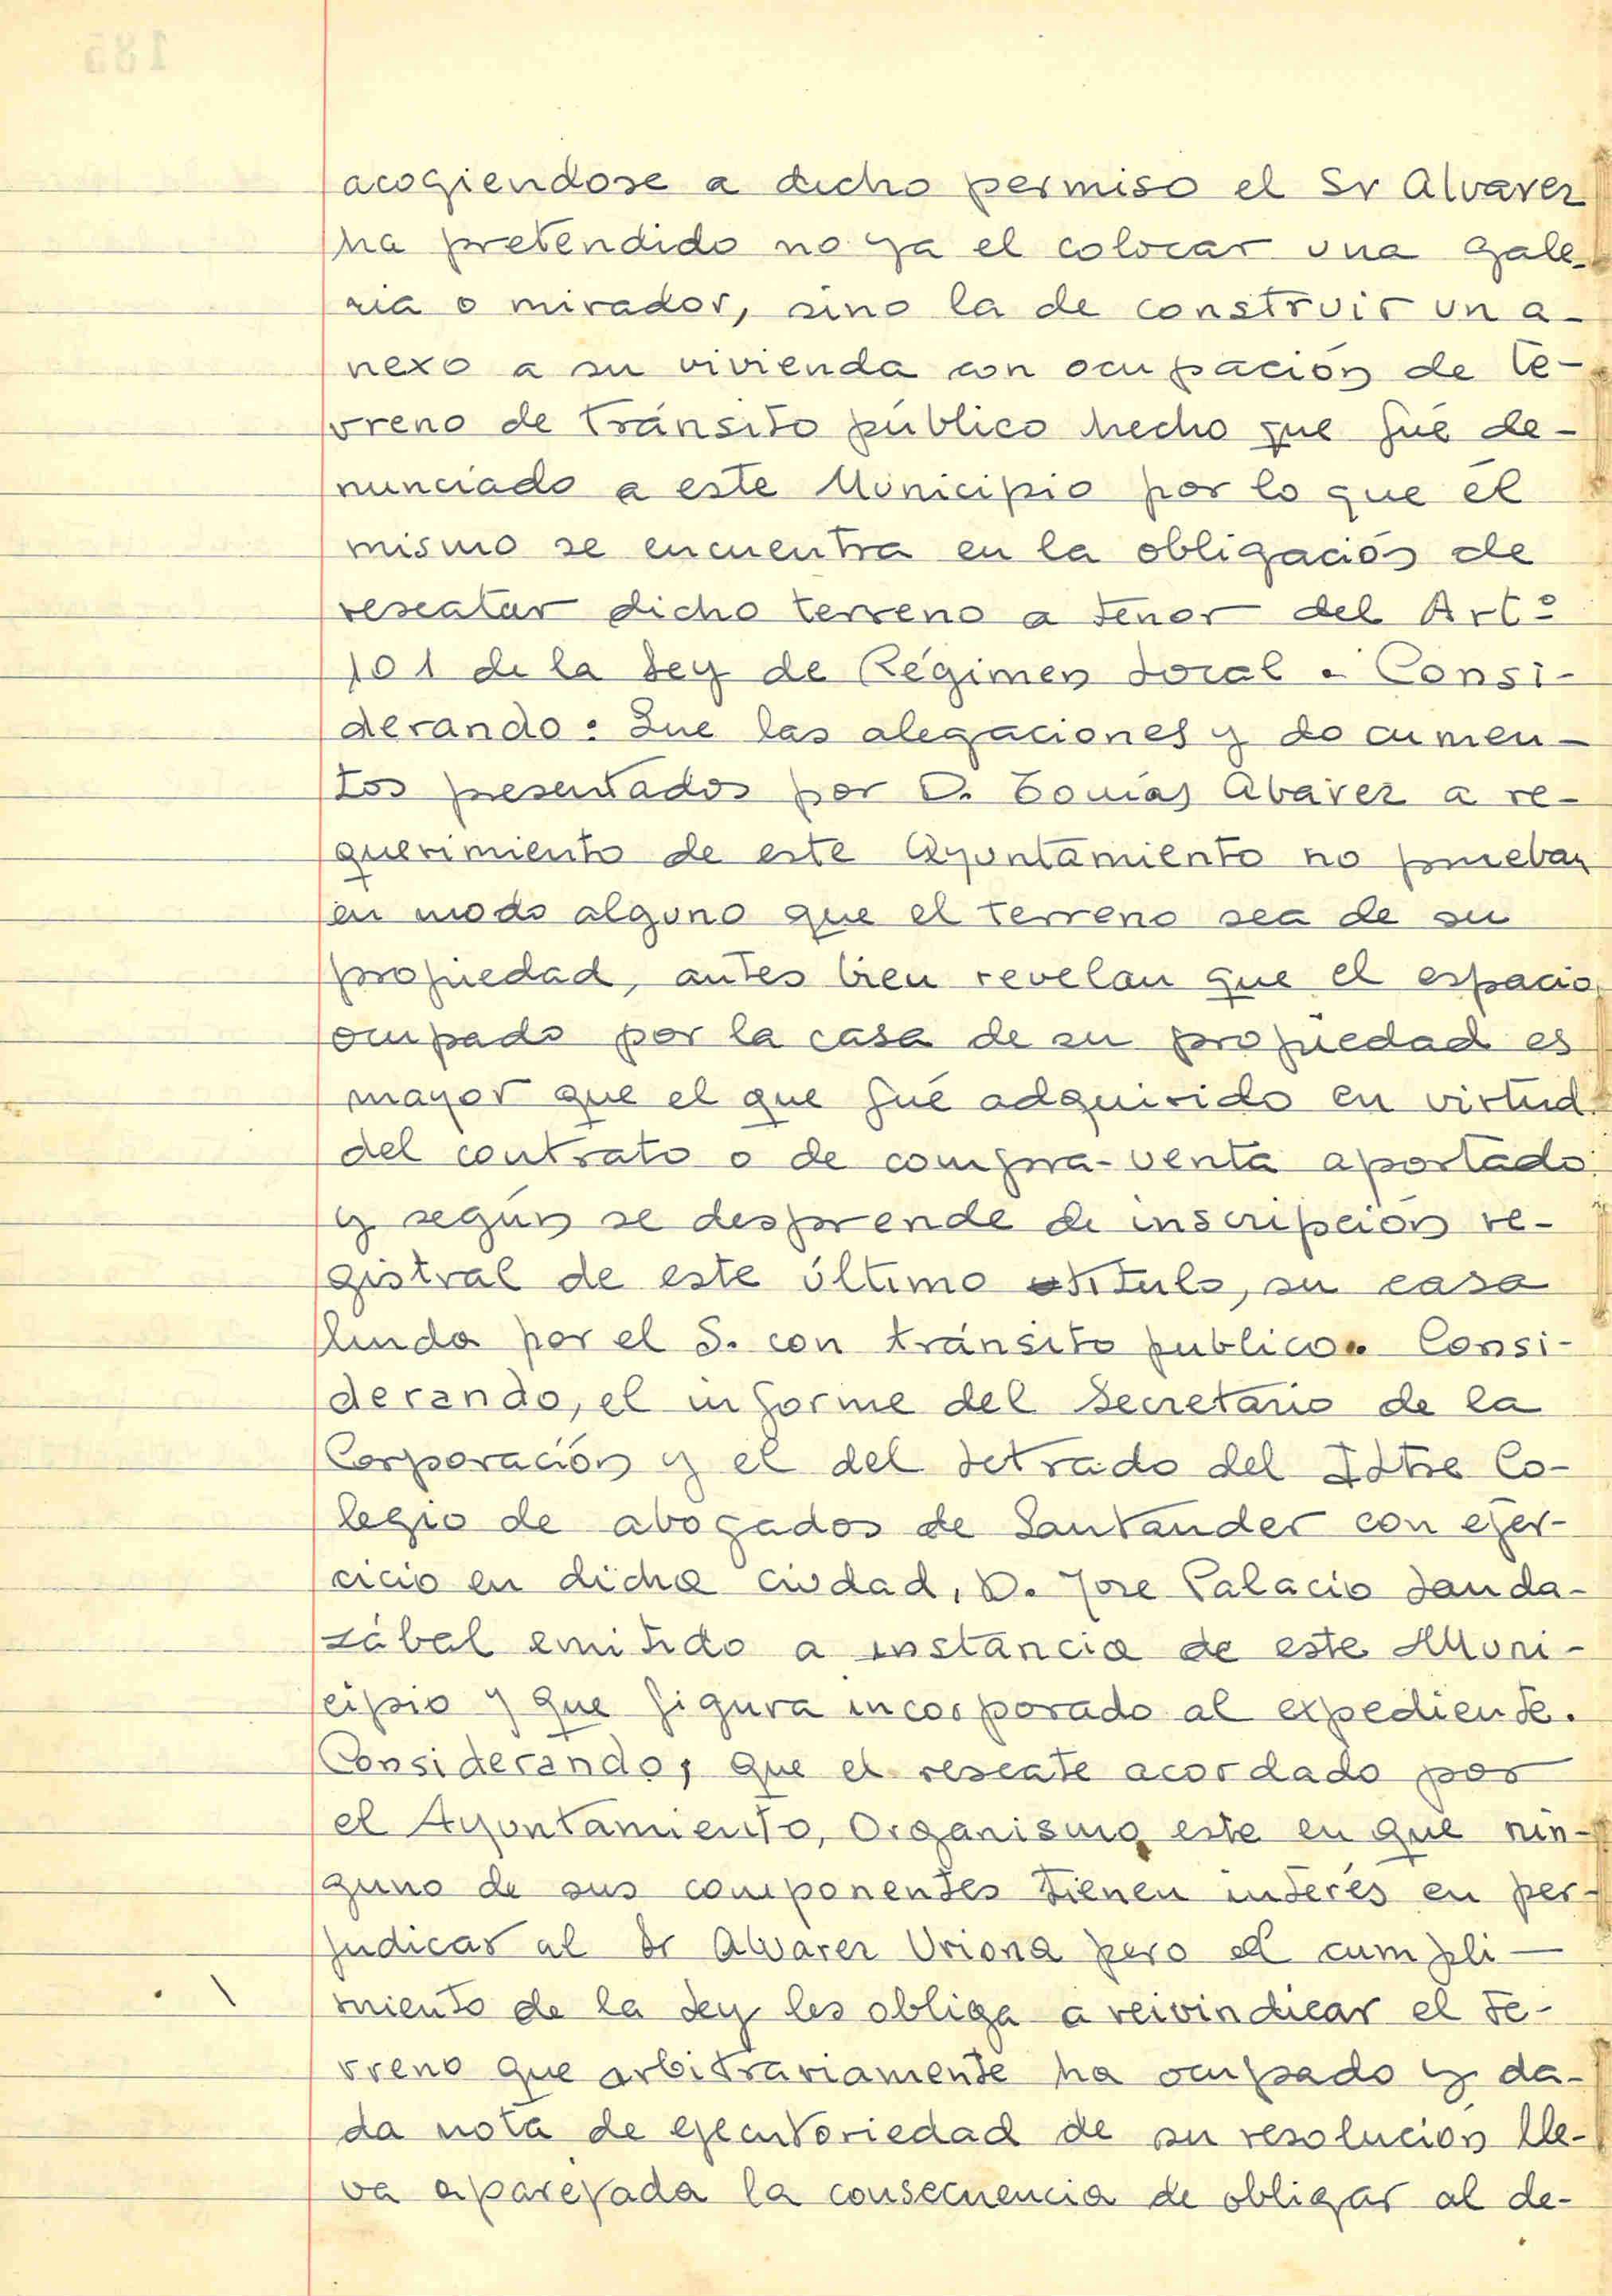 acogiendose a dicho permiso el Sr Alvarez
ha pretendido no ya el colocar una gale-
ria o mirador, sino la de construir un a-
nexo a su vivienda con ocupación de te-
rreno de tránsito público hecho que fué de-
nunciado a este Municipio por lo que él
mismo se encuentra en la obligación de
rescatar dicho terreno a tenor del Artº
101 de la Ley de Régimen Local. Consi-
derando: Que las alegaciones y documen-
tos presentados por D. Tomás Alvarez a re-
querimiento de este Ayuntamiento no prueban
en modo alguno que el terreno sea de su
propiedad, antes bien revelan que el espacio
ocupado por la casa de su propiedad es
mayor que el que fué adquirido en virtud
del contrato o de compra-venta aportado
y según se desprende de inscripción re-
gistral de este último título, su casa
linda por el S. con tránsito publico. Consi-
derando, el informe del Secretario de la
Corporación y el del Letrado del Iltre Co-
legio de abogados de Santander con ejer-
cicio en dicha ciudad, D. Jose Palacio Landa-
zábal emitido a instancia de este Muni-
cipio y que figura incorporado al expediente.
Considerando, que el rescate acordado por
el Ayuntamiento, Organismo este en que nin-
guno de sus componentes tienen interés en per-
judicar al Sr Alvarez Uriona pero el cumpli-
miento de la Ley les obliga a reivindicar el te-
rreno que arbitrariamente ha ocupado y da-
da nota de ejecutoriedad de su resolución lle-
va aparejada la consecuencia de obligar al de-